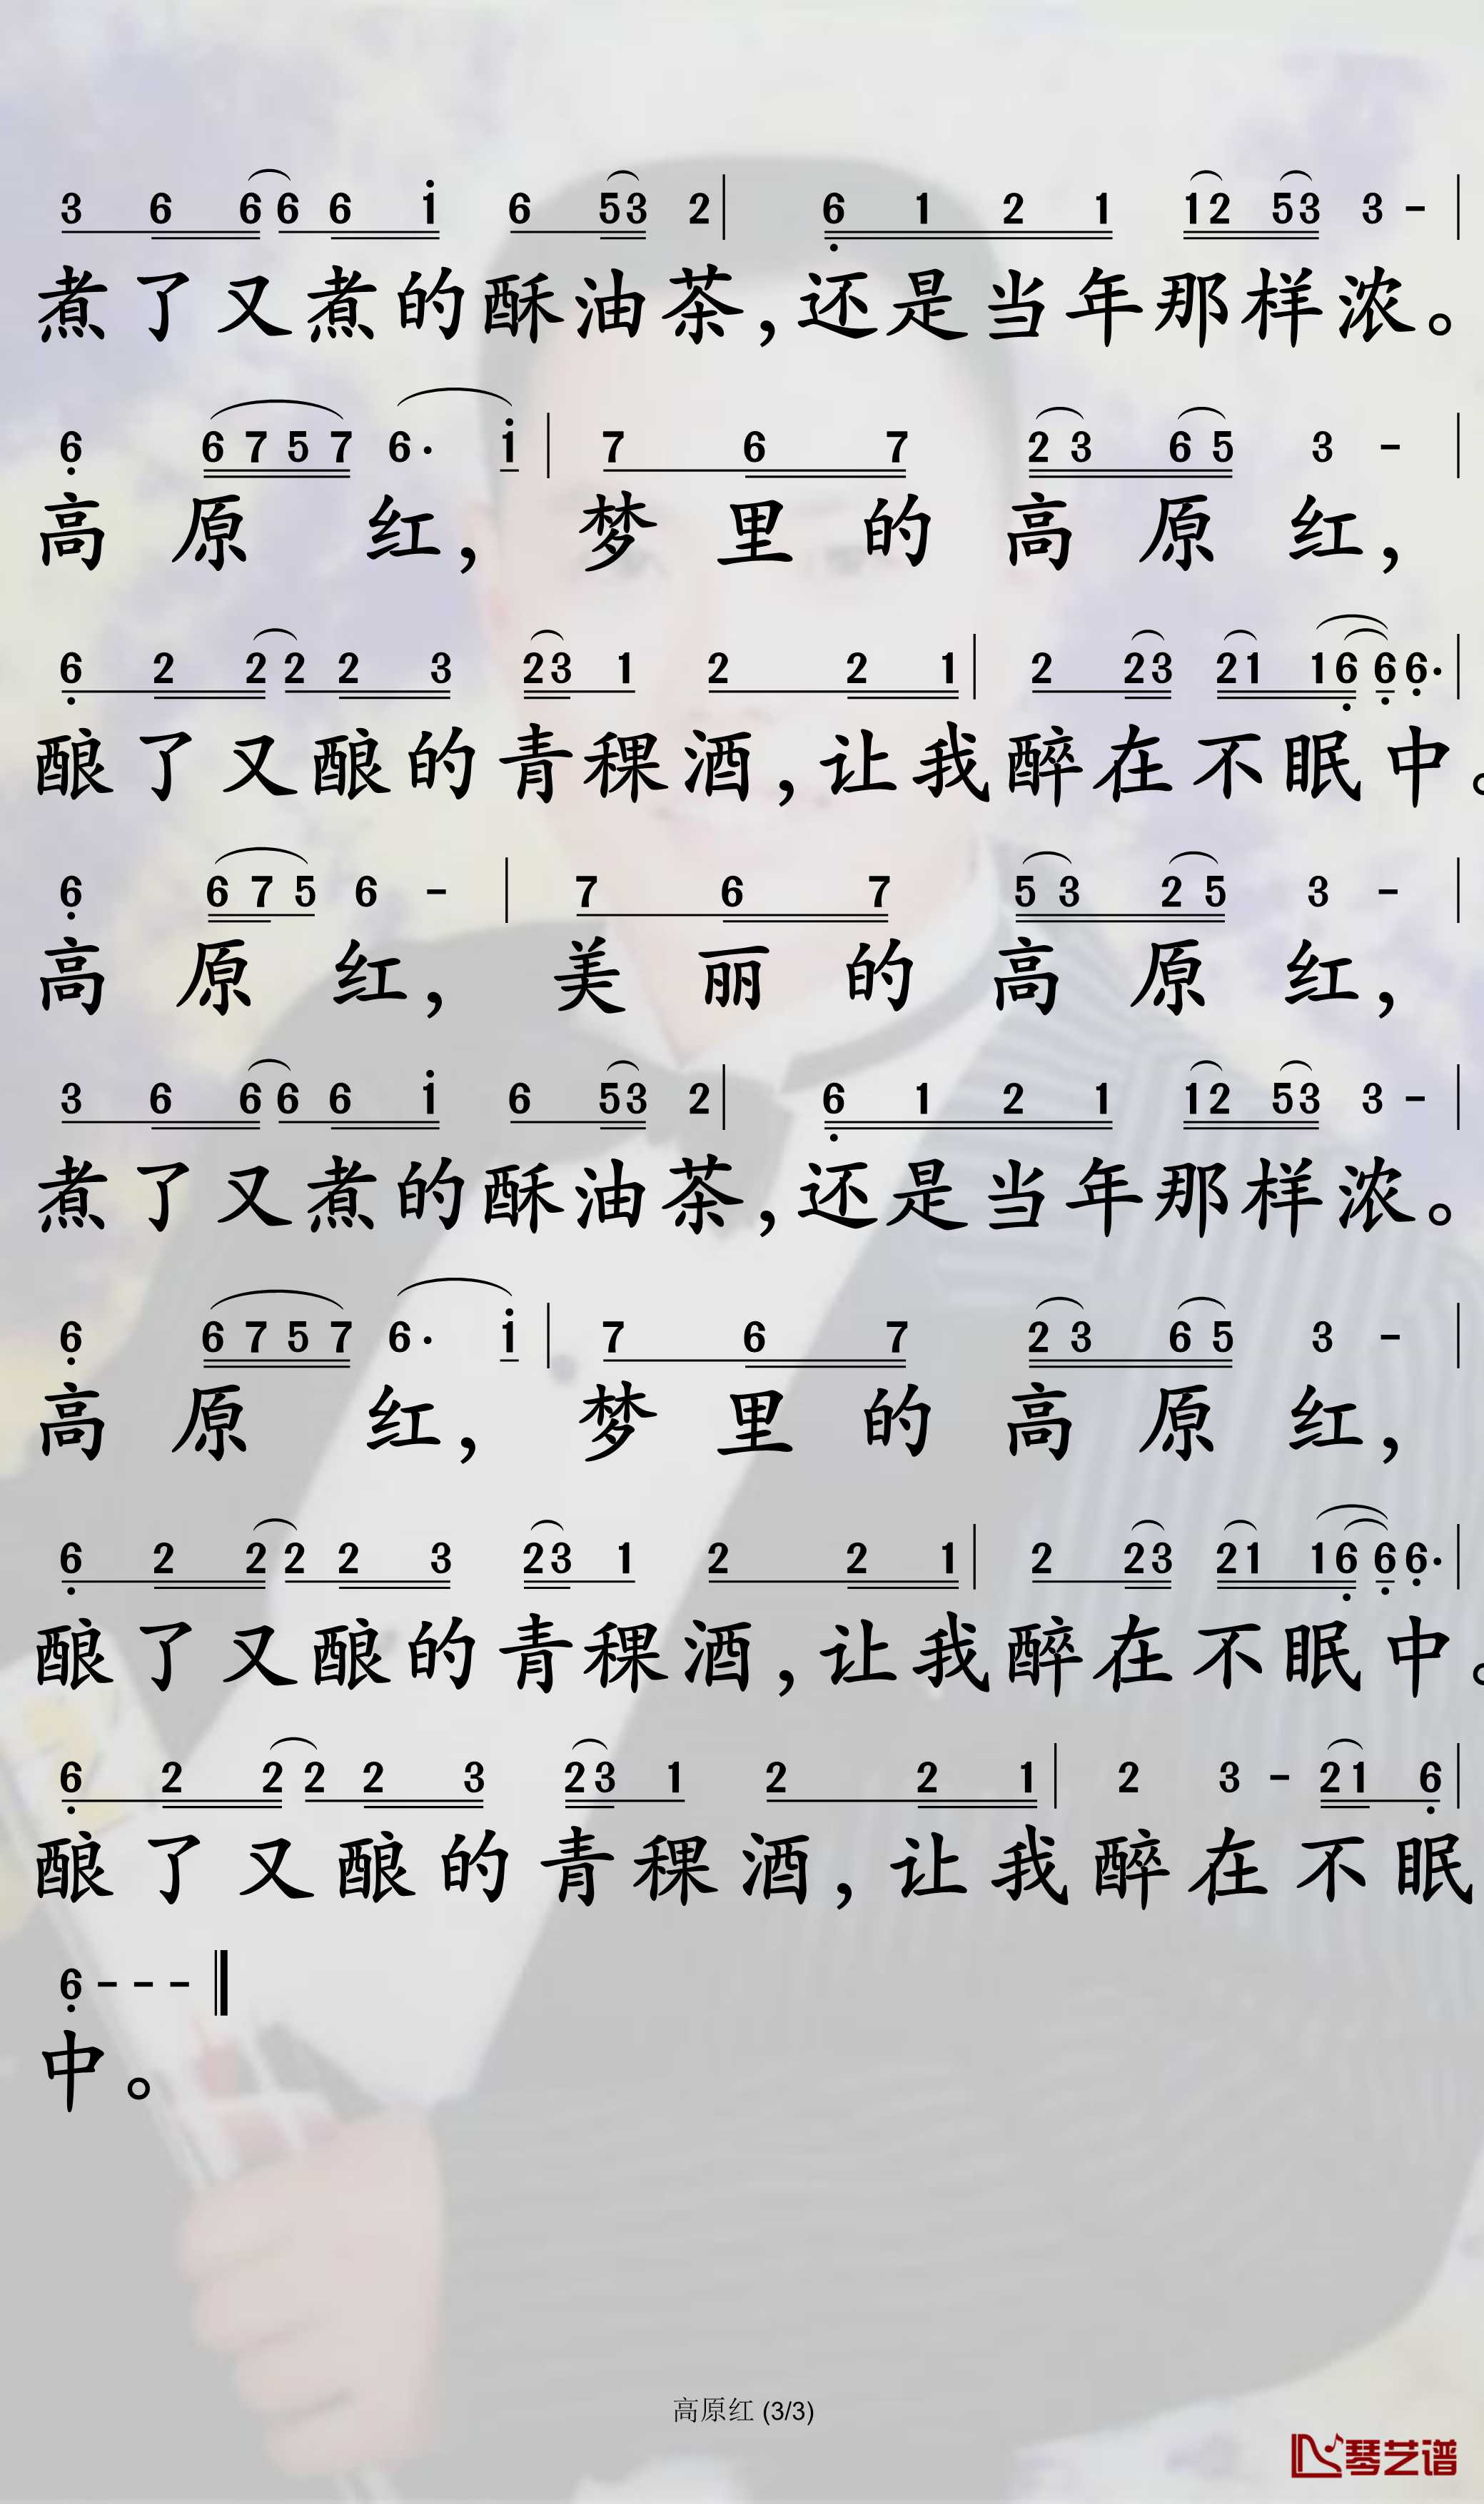 3 6 6 6 6 1 6 5 3 2 | 6 1 2 1 1 2 5 3 3 - |
煮了又煮的酥油茶,还是当年那样浓。
6 6 7 5 7 6· 1 | 7 6 7 2 3 6 5 3 - |
高原红,梦里的高原红,
6 2 2 2 2 3 2 3 1 2 2 1 | 2 2 3 2 1 1 6 6 6· |
酿了又酿的青稞酒,让我醉在不眠中。
6 6 7 5 6 - | 7 6 7 5 3 2 5 3 - |
高原红,美丽的高原红,
3 6 6 6 6 1 6 5 3 2 | 6 1 2 1 1 2 5 3 3 - |
煮了又煮的酥油茶,还是当年那样浓。
6 6 7 5 7 6· 1 | 7 6 7 2 3 6 5 3 - |
高原红,梦里的高原红,
6 2 2 2 2 3 2 3 1 2 2 1 | 2 2 3 2 1 1 6 6 6· |
酿了又酿的青稞酒,让我醉在不眠中。
6 2 2 2 2 3 2 3 1 2 2 1 | 2 3 - 2 1 6 |
酿了又酿的青稞酒,让我醉在不眠
6 - - -
中。
高原红 (3/3)
琴艺谱